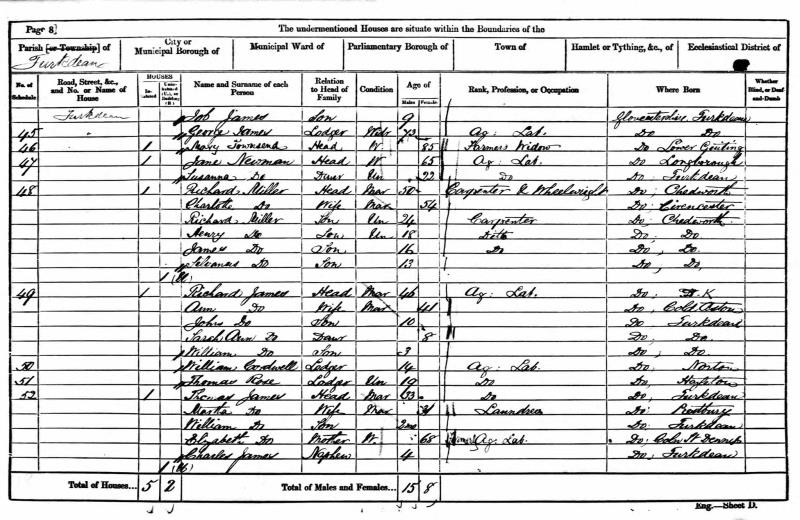 Page 8]
The undermentioned Houses are situate within the Boundaries of the
Parish [or Township] of
City or Municipal Borough of
Municipal Ward of
Parliamentary Borough of
Town of
Hamlet or Tything, &c., of
Ecclesiastical District of
Turkdean
No. of Schedule
Road, Street, &c., and No. or Name of House
HOUSES
Inhabited
Uninhabited (U.), or Building (B.)
Name and Surname of each Person
Relation to Head of Family
Condition
Age of
Males
Females
Rank, Profession, or Occupation
Where Born
Whether Blind, or Deaf-and-Dumb
Turkdean Job James Son 9 Gloucestershire Turkdean
45 " George James Lodger Widr 73 Ag: Lab. Do Do
46 1 Mary Townsend Head W. 85 Farmers Widow Do Lower Guiting
47 1 Jane Newman Head W. 65 Ag: Lab. Do Longborough
Susanna Do Daur Un 22 Do Do: Turkdean
48 1 Richard Miller Head Mar 50 Carpenter & Wheelwright Do; Chedworth
Charlotte Do Wife Mar 54 Do: Cirencester
Richard Miller Son Un 24 Carpenter Do: Chedworth
Henry Do Son Un 18 Do: Do:
James Do Son 16 Do Do, Do.
Silvanus Do Son 13 Do, Do,
1
49 1 Richard James Head Mar 46 Ag: Lab. Do: N. K
Ann Do Wife Mar 41 Do, Cold Aston
John Do Son 10 Do Turkdean
Sarah Ann Do Daur 8 Do; Do.
William Do Son 3 Do, Do.
50 William Cordwell Lodger 14 Ag: Lab. Do: Norton
51 Thomas Rose Lodger Un 19 Do Do:
52 1 Thomas James Head Mar 33 Do; Do, Turkdean
Wife Mar 31 Laundress Do:
William Do Son 2mo Do: Turkdean
Elizabeth Do Mother W. 68 Ag: Lab. Do; Coln St Dennis
Charles James Nephew 4 Do; Turkdean
1
Total of Houses... 5 2
Total of Males and Females... 15 8
Eng.—Sheet D.